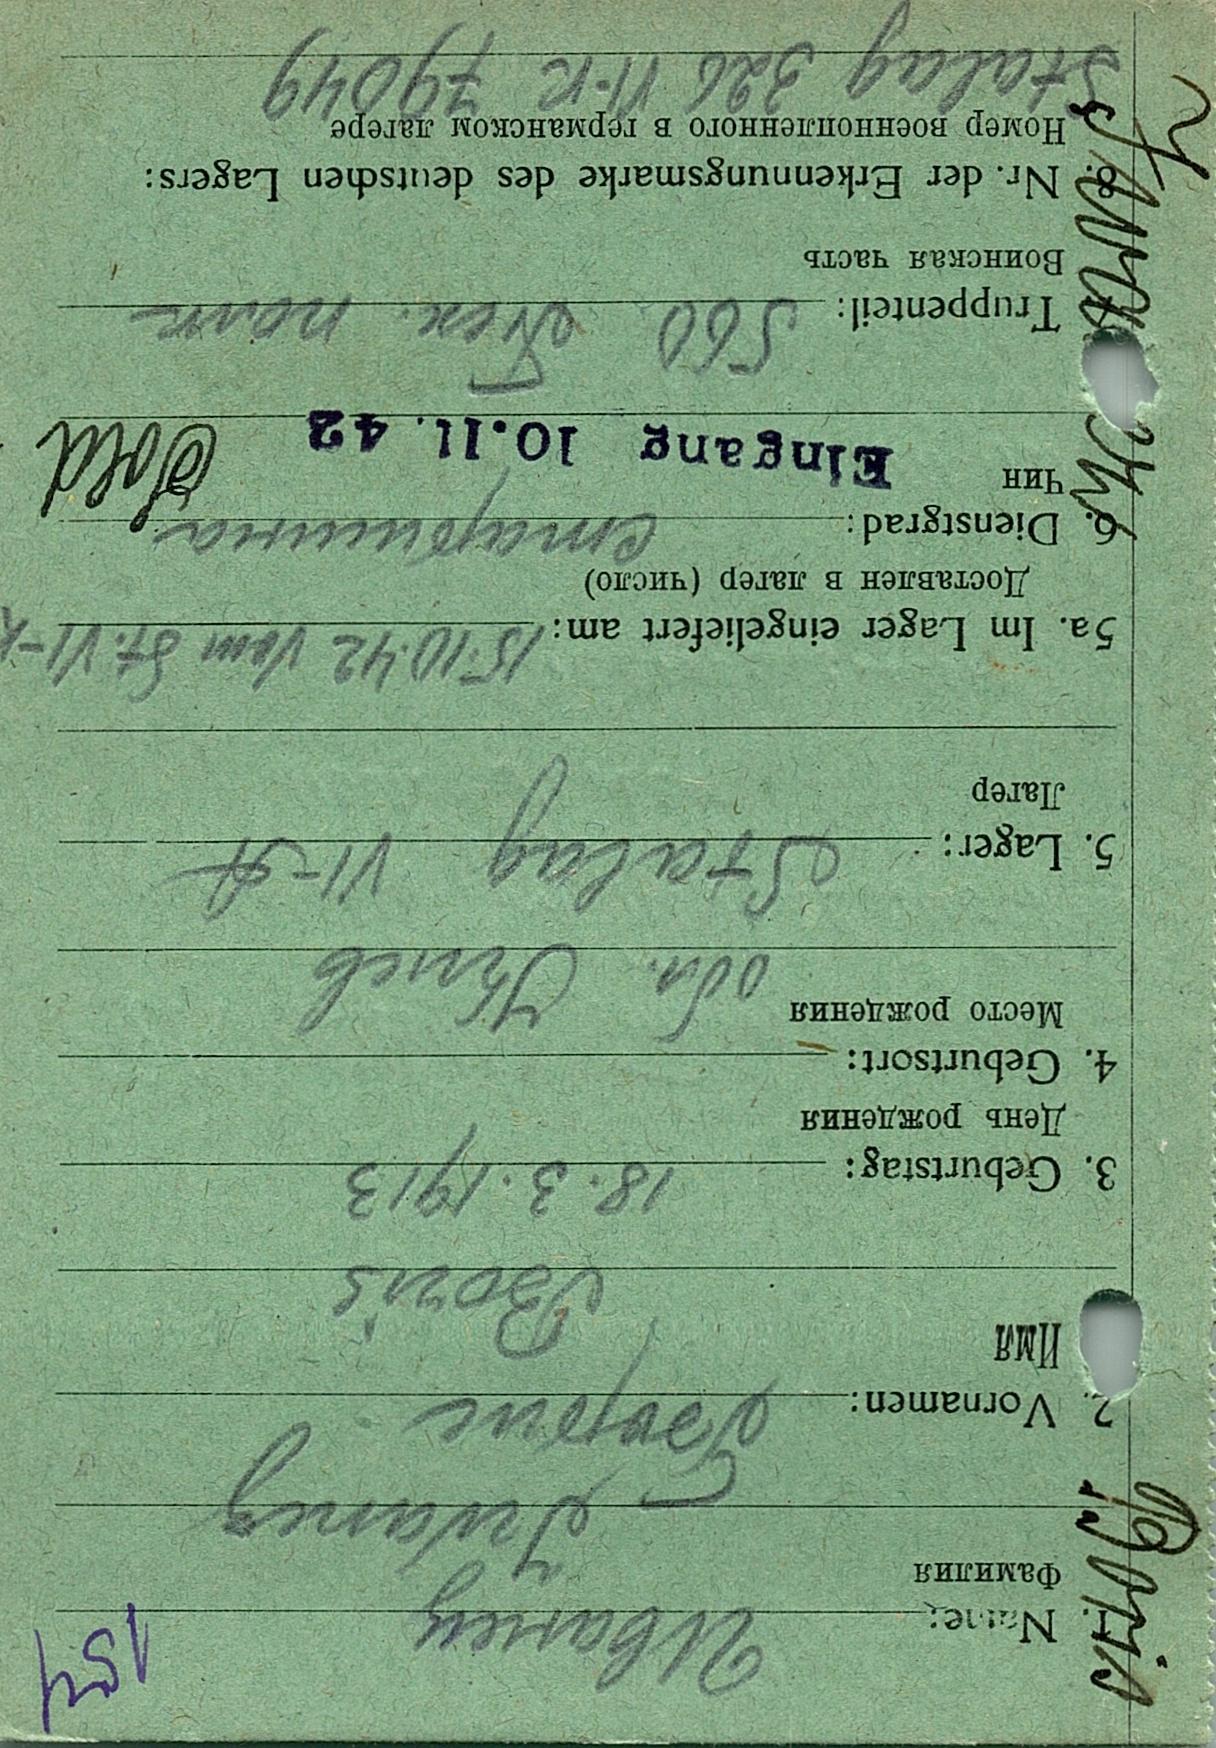 1. Name: Иванец
Фамилия
Iwanez
2. Vornamen: Борис
Имя
Boris
3. Geburtstag: 18.3.1913
День рождения
4. Geburtsort:
Место рождения
обл. Киев
5. Lager: Stalag VI-A
Лагер
5a. Im Lager eingeliefert am: 15.10.42 vom St. VI-K
Доставлен в лагер (число)
6. Dienstgrad: старшина Sold
Чин
Eingang 10.11.42
Truppenteil: 560 полк
Воинская часть
8. Nr. der Erkennungsmarke des deutschen Lagers:
Номер военнопленного в германском лагере
Stalag 326 VI-K 79049
Boris